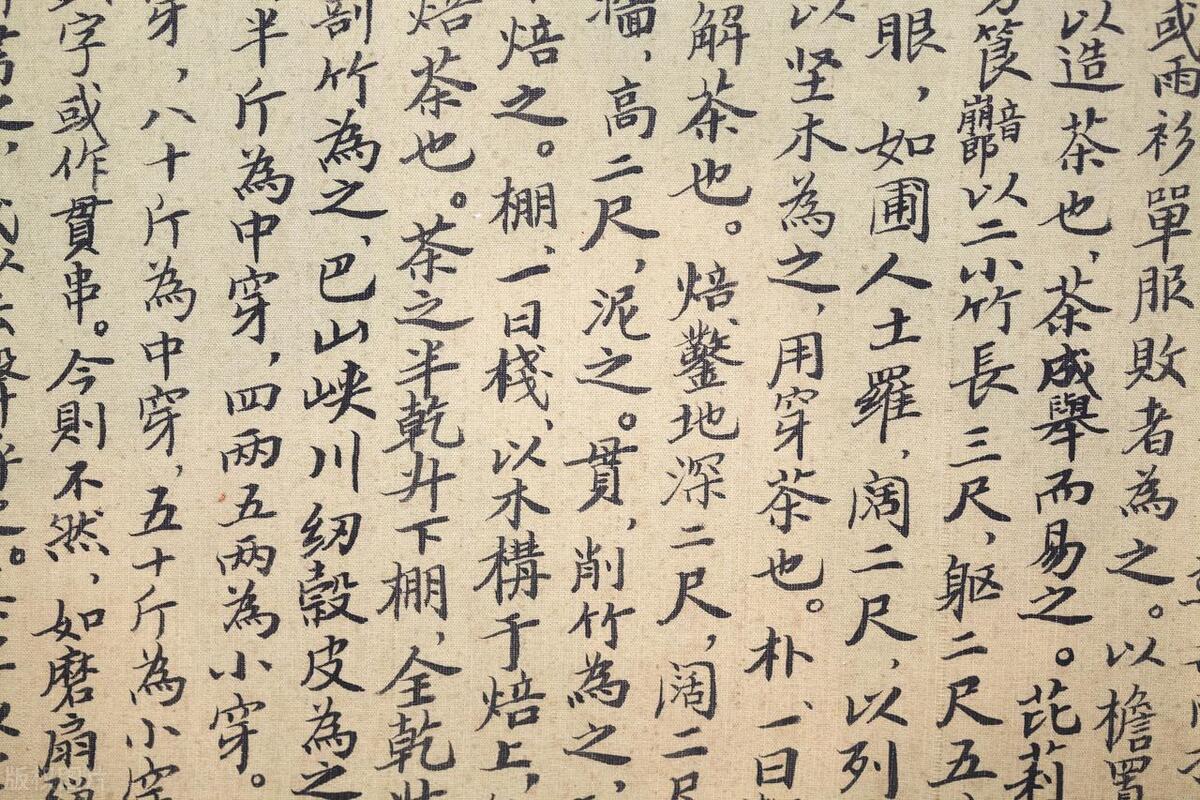 或雨衫單服敗者為之。以檐置
以造茶也,茶成舉而易之。芘莉
筤音崩郎以二小竹長三尺、軀二尺五
眼,如圃人土羅,闊二尺,以列
以坚木為之,用穿茶也。朴、一曰
解茶也。焙、鑿地深二尺,濶二尺
牆,高二尺,泥之。貫,削竹為之,
焙之。棚、一曰棧,以木構于焙上,
焙茶也。茶之半乾升下棚,全乾
剖竹為之、巴山峽川紉縠皮為之
半斤為中穿,四兩五兩為小穿。
穿,八十斤為中穿,五十斤為小穿
字或作貫串。今則不然,如磨扇